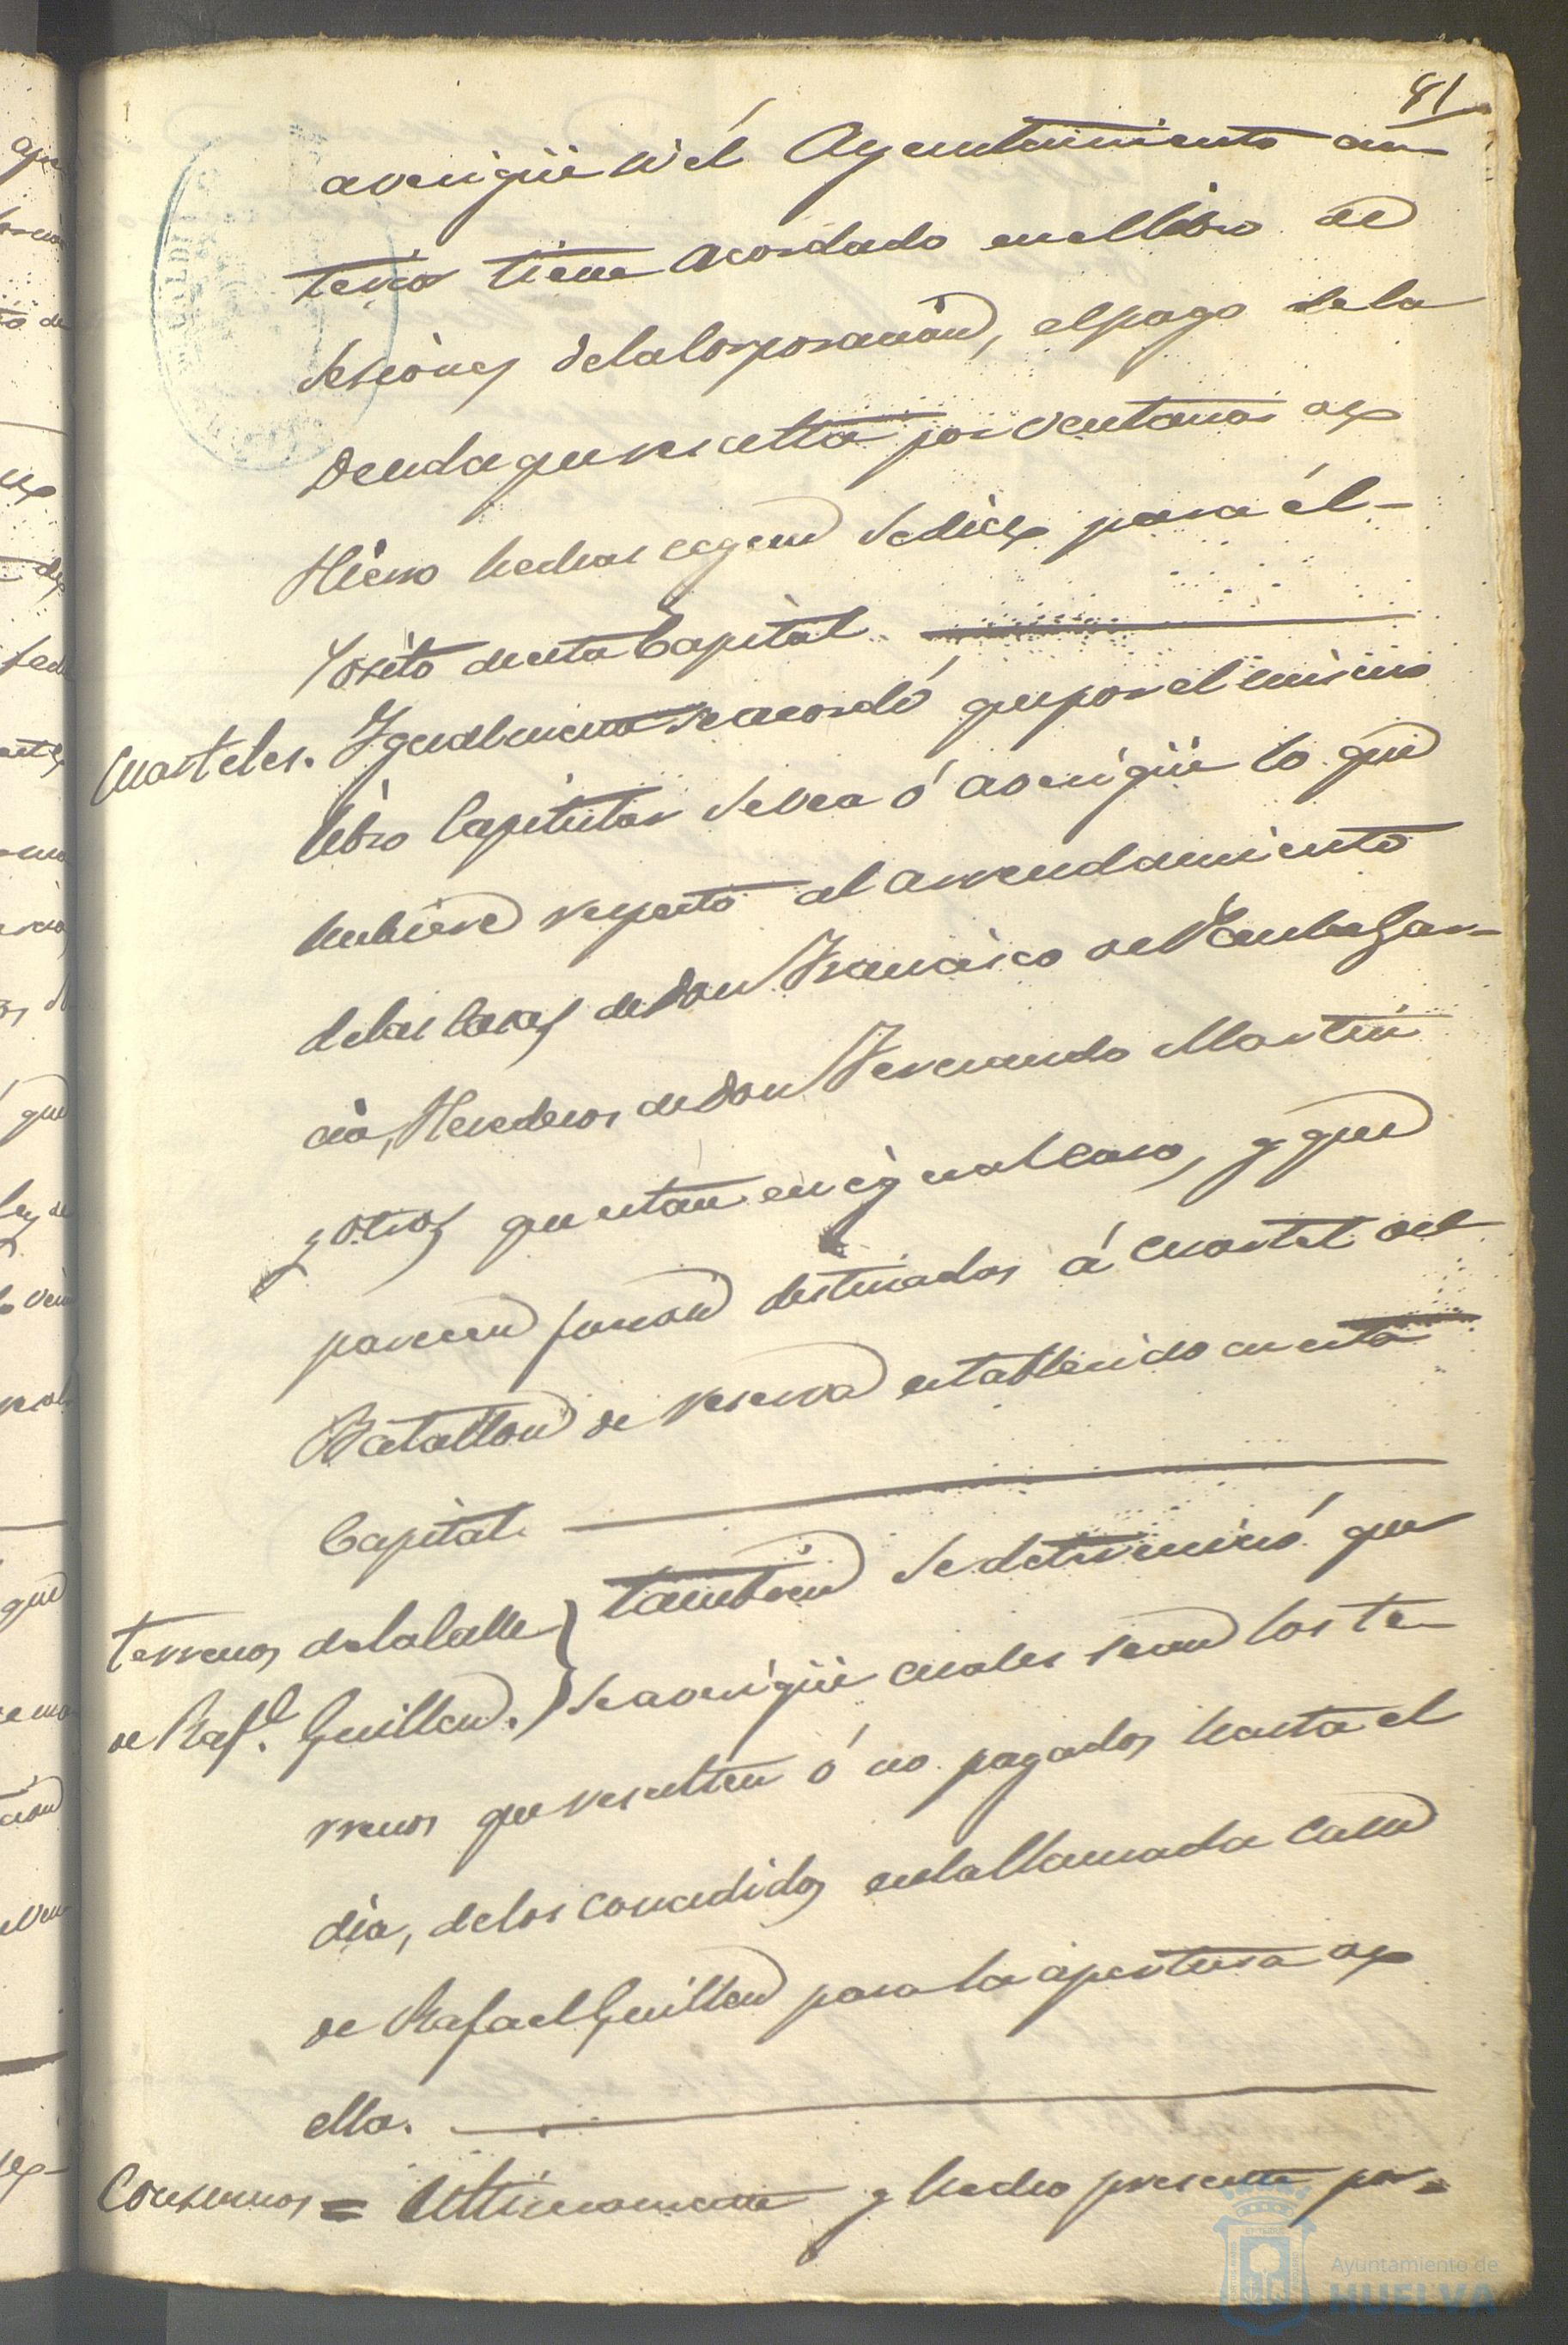 81
averigüe si el Ayuntamiento an
terior tiene acordado en el libro de
Sesiones de la Corporacion, el pago de la
Deuda que resulta por ventanas de
Hierro hechas segun se dice para él
Posito de esta Capital
Cuarteles. Igualmente se acordó que por el mismo
libro Capitular se vea ó averigüe lo que
hubiere respecto al arrendamiento
de las Casas de Don Francisco de Gar-
cia, Herederos de Don Fernando Martin
y otros que estan en igual caso, y que
parecen fueron destinados á Cuartel del
Batallon de reserva establecido en esta
Capital.
Terrenos de la Calle
de Raf.l Guillen.
tambien se determinó que
se averigüe cuales sean los te-
rrenos que resulten ó no pagados hasta el
dia, de los concedidos en la llamada Calle
de Rafael Guillen para la apertura de
ella.
Consumos = Ultimamente y hecho presente por
Ayuntamiento de
HUELVA